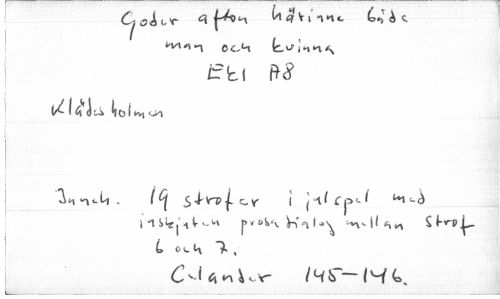 Goder afton härinne både
man och kvinna
Ek1 A8
Klädesholmen
Inneh. 19 strofer i julspel med
inskjuten prosadialog mellan strof
6 och 7.
Celander 145-146.